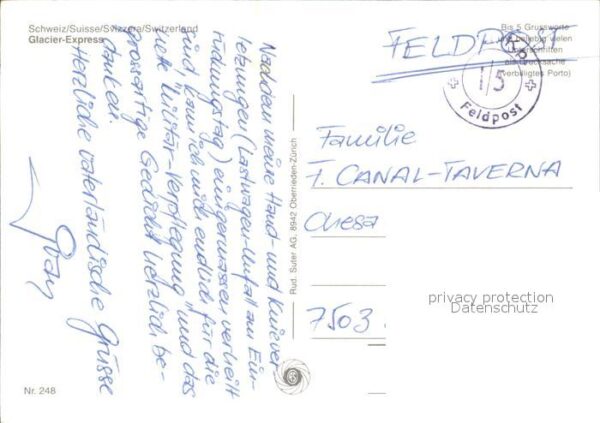 Schweiz/Suisse/Svizzera/Switzerland
Glacier-Express
Bis 5 Grussworte
und beliebig vielen
Unterschriften
als Drucksache
(verbilligtes Porto)
FELDPOST
1/5
Feldpost
Familie
F. CANAL-TAVERNA
Chesa
7503
privacy protection
Datenschutz
Rud. Suter AG, 8942 Oberrieden-Zürich
Nachdem meine Hand- und Kniever-
letzungen (Lastwagen-Unfall am Ein-
rückungstag) einigermassen verheilt
sind, kann ich mich endlich für die
nette "Militär-Verpflegung" und das
grossartige Gedicht herzlich be-
danken.
Herzliche vaterländische Grüsse
Nr. 248